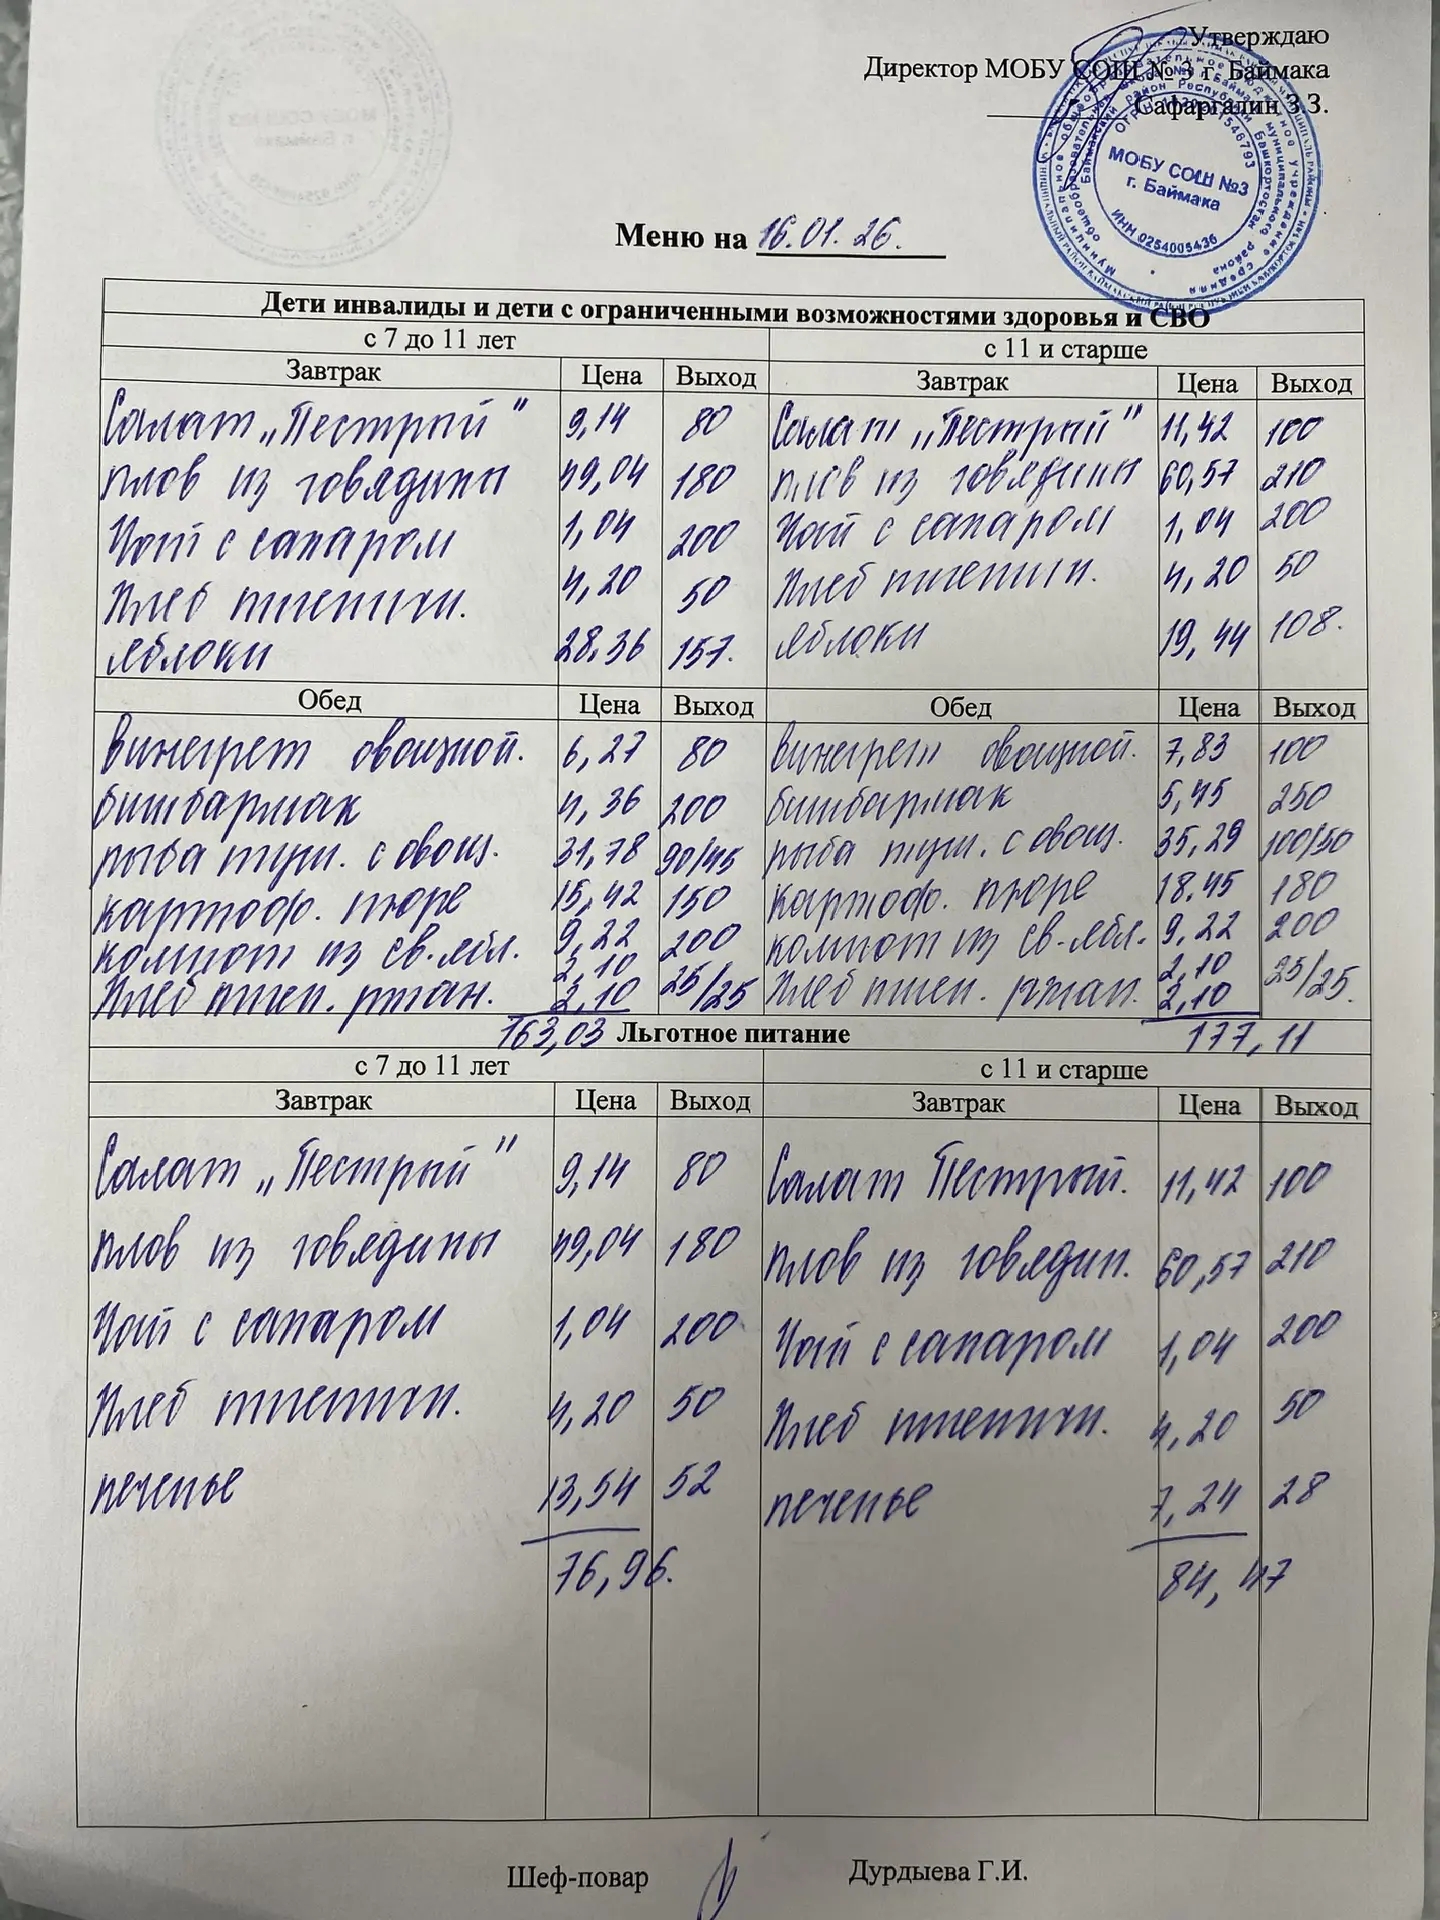 Утверждаю
Директор МОБУ СОШ № 3 г. Баймака
Сафаргалин З.З.
МОБУ СОШ №3
г. Баймака
ИНН 0254005436
Меню на 16.01.26.
Дети инвалиды и дети с ограниченными возможностями здоровья и СВО
с 7 до 11 лет с 11 и старше
Завтрак Цена Выход Завтрак Цена Выход
Салат „Пестрый" 9,14 80 Салат „Пестрый" 11,42 100
плов из говядины 49,04 180 плов из говядины 60,57 210
Чай с сахаром 1,04 200 Чай с сахаром 1,04 200
Хлеб пшеничн. 4,20 50 Хлеб пшеничн. 4,20 50
яблоки 28.36 157. яблоки 19,44 108.
Обед Цена Выход Обед Цена Выход
винегрет овощной. 6,27 80 винегрет овощной. 7,83 100
бишбармак 4,36 200 бишбармак 5,45 250
рыба туш. с овощ. 31,78 90/45 рыба туш. с овощ. 35,29 100/50
картоф. пюре 15,42 150 картоф. пюре 18.45 180
компот из св. ябл. 9,22 200 компот из св. ябл. 9,22 200
2,10 2,10
Хлеб пшен. ржан. 2,10 25/25 Хлеб пшен. ржан. 2,10 25/25.
163,03 Льготное питание 177,11
с 7 до 11 лет с 11 и старше
Завтрак Цена Выход Завтрак Цена Выход
Салат „Пестрый" 9,14 80 Салат Пестрый. 11,42 100
плов из говядины 49,04 180 плов из говядин. 60,57 210
Чай с сахаром 1,04 200 Чай с сахаром 1,04 200
Хлеб пшеничн. 4,20 50 Хлеб пшеничн. 4,20 50
печенье 13,54 52 печенье 7,24 28
76,96. 84,47
Шеф-повар Дурдыева Г.И.